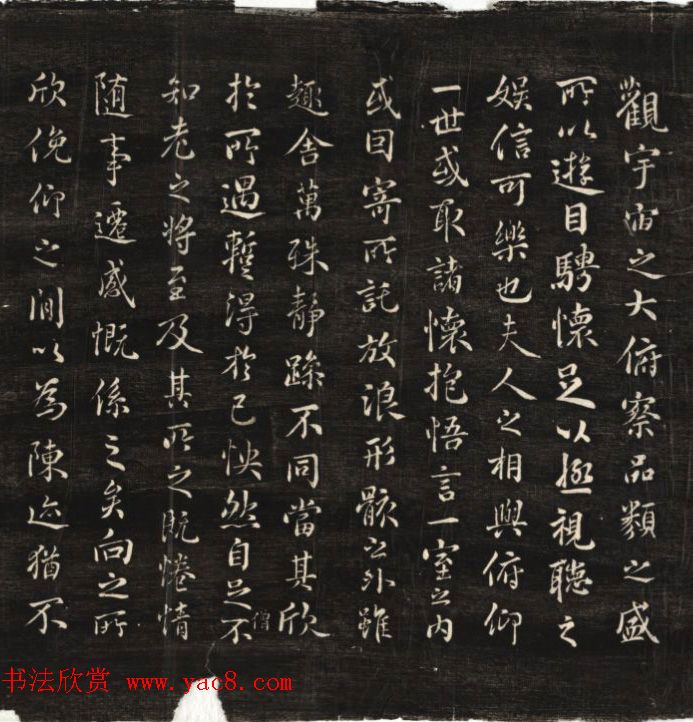 觀宇宙之大俯察品類之盛
所以遊目騁懷足以極視聽之
娛信可樂也夫人之相與俯仰
一世或取諸懷抱悟言一室之內
或因寄所託放浪形骸之外雖
趣舍萬殊靜躁不同當其欣
於所遇暫得於己怏然自足不
僧
知老之將至及其所之既惓情
隨事遷感慨係之矣向之所
欣俛仰之閒以為陳迹猶不
书法欣赏 www.yac8.com